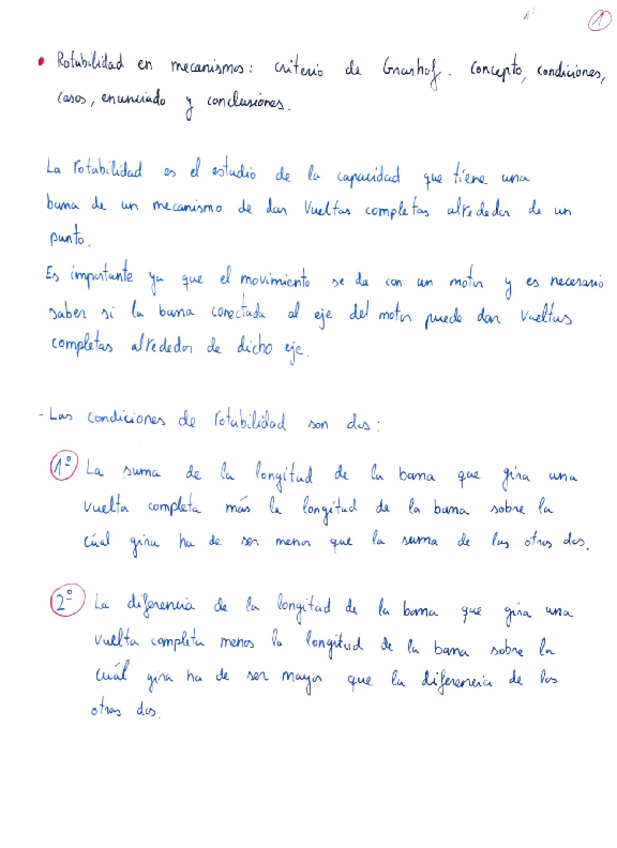 1
• Rotabilidad en mecanismos: criterio de Grashof. Concepto, condiciones,
casos, enunciado y conclusiones.
La rotabilidad es el estudio de la capacidad que tiene una
barra de un mecanismo de dar vueltas completas alrededor de un
punto.
Es importante ya que el movimiento se da con un motor y es necesario
saber si la barra conectada al eje del motor puede dar vueltas
completas alrededor de dicho eje.
- Las condiciones de rotabilidad son dos:
1º La suma de la longitud de la barra que gira una
vuelta completa más la longitud de la barra sobre la
cúal gira ha de ser menor que la suma de las otras dos.
2º La diferencia de la longitud de la barra que gira una
vuelta completa menos la longitud de la barra sobre la
cuál gira ha de ser mayor que la diferencia de las
otras dos.